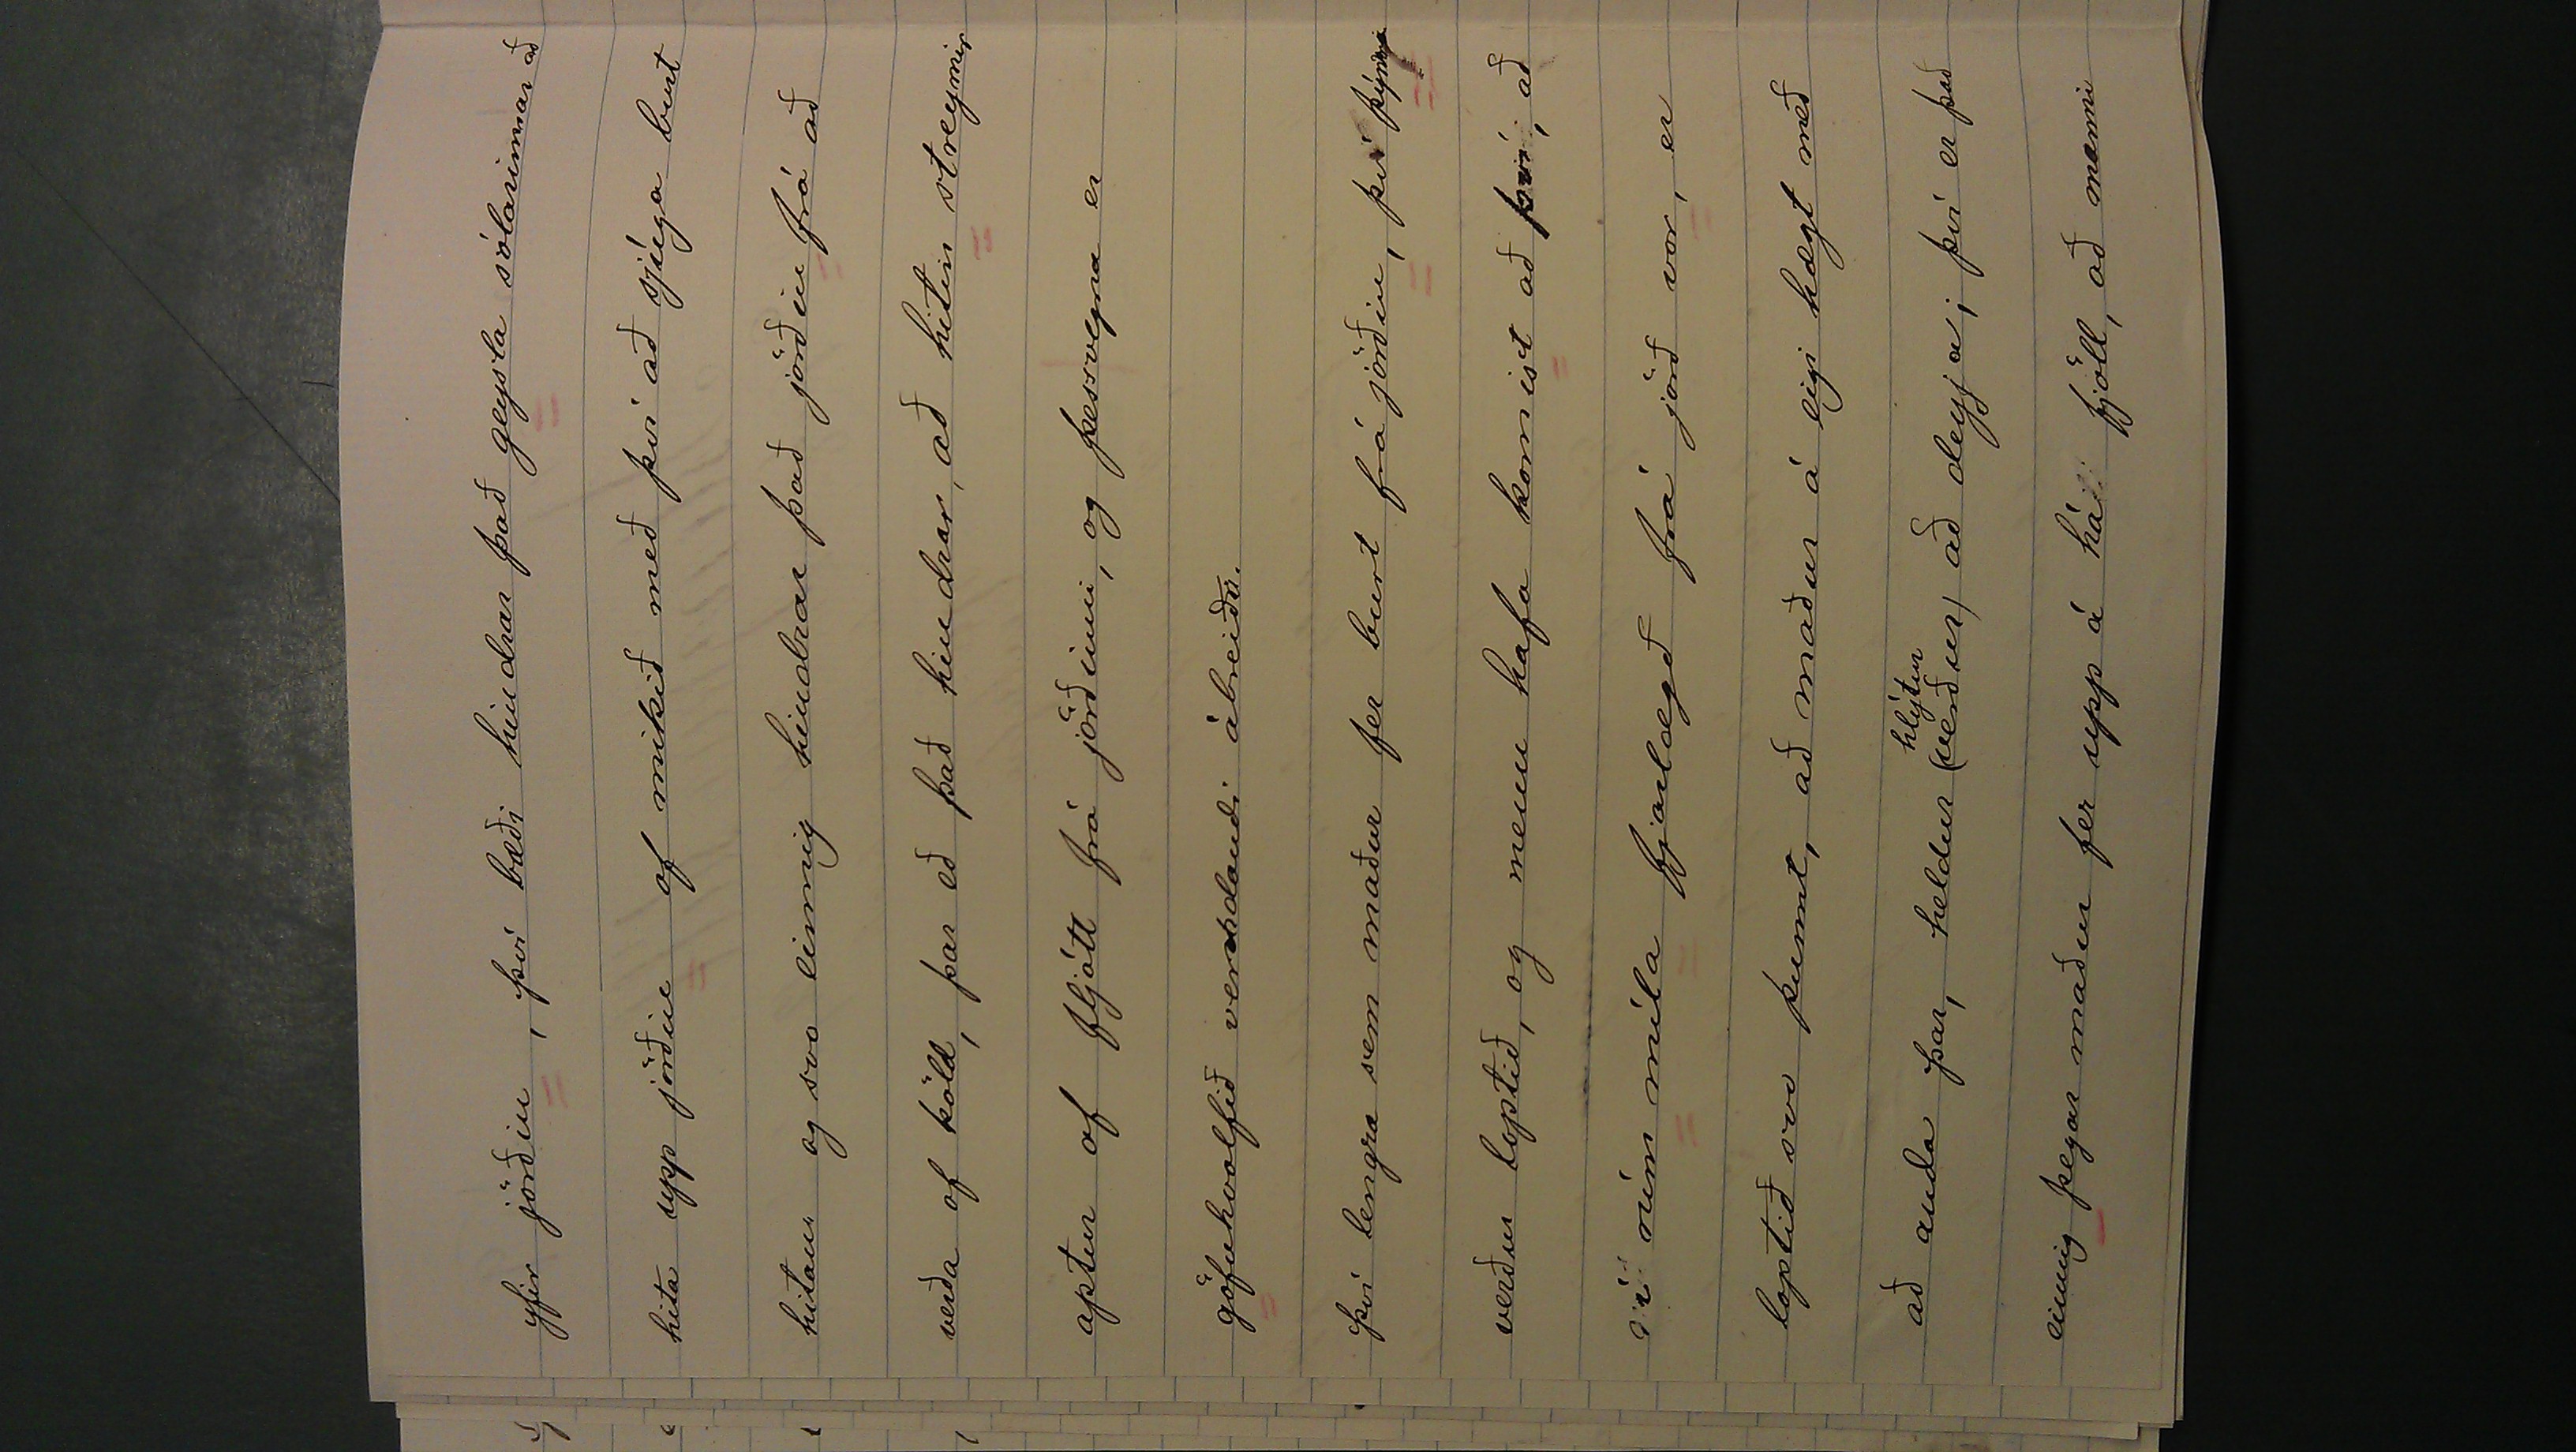 yfir jörðin, því bæði hindrar það geysla sólarinnar að
hita upp jörðin of mikið með því að sjúga burt
hitan og svo einnig hindrar það jörðin frá að
verða of köld, þar eð það hindrar, að hitin streymir
aptur of fljótt frá jörðinni, og þessvegna er
göfuhvolfið verndandi ábreiða.
því lengra sem maður fer burt frá jörðin, því þýnna
verður loptið, og menn hafa komist að því, að
í rúm míla fjarlægð frá jörð vor, er
loptið svo þunnt, að maður á eigi hægt með
hlýtur
að anda þar, heldur (verður) að deyja; því er það
einnig þegar maður fer upp á há fjöll, að manni